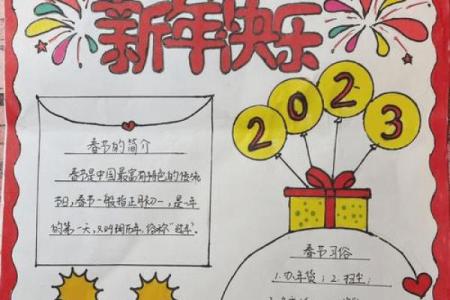 新年快乐
2023
春节的简介
春节是中国最富有特色的传统
节日,春节一般指正月初一,是一年
的第一天,又叫阴历年,俗称“过年”。
春节习俗
1.办年货;2.扫尘;